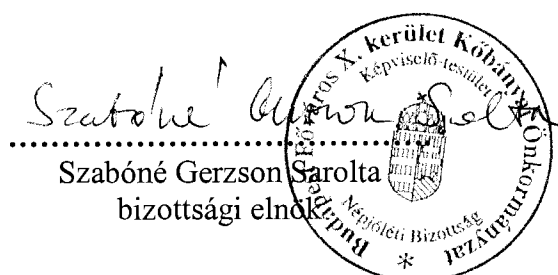 Szabóné Gerzson Sarolta
Szabóné Gerzson Sarolta
bizottsági elnök
Budapest Főváros X. kerület Kőbányai Önkormányzat
Képviselő-testület
Népjóléti Bizottság
*